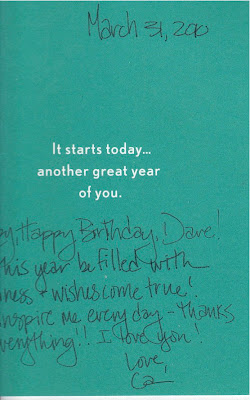 March 31, 2010
It starts today...
another great year
of you.
Happy Birthday, Dave!
this year be filled with
wishes come true!
me every day - thanks
I love you!
Love,